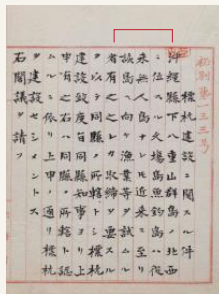 秘別第一三三号
標杭建設ニ関スル件
沖縄縣下八重山群島ノ北西
ニ位スル久場島魚釣島ハ従
来無人島ナレトモ近来ニ至リ
該島ヘ向ケ漁業等ヲ試ムル
者有之之レカ取締ヲ要スル
ヲ以テ同縣ノ所轄トシ標杭
建設致度旨同縣知事ヨリ上
申有之右ハ同縣ノ所轄ト認
ムルニ依リ上申ノ通リ標杭
ヲ建設セシメントス
右閣議ヲ請フ